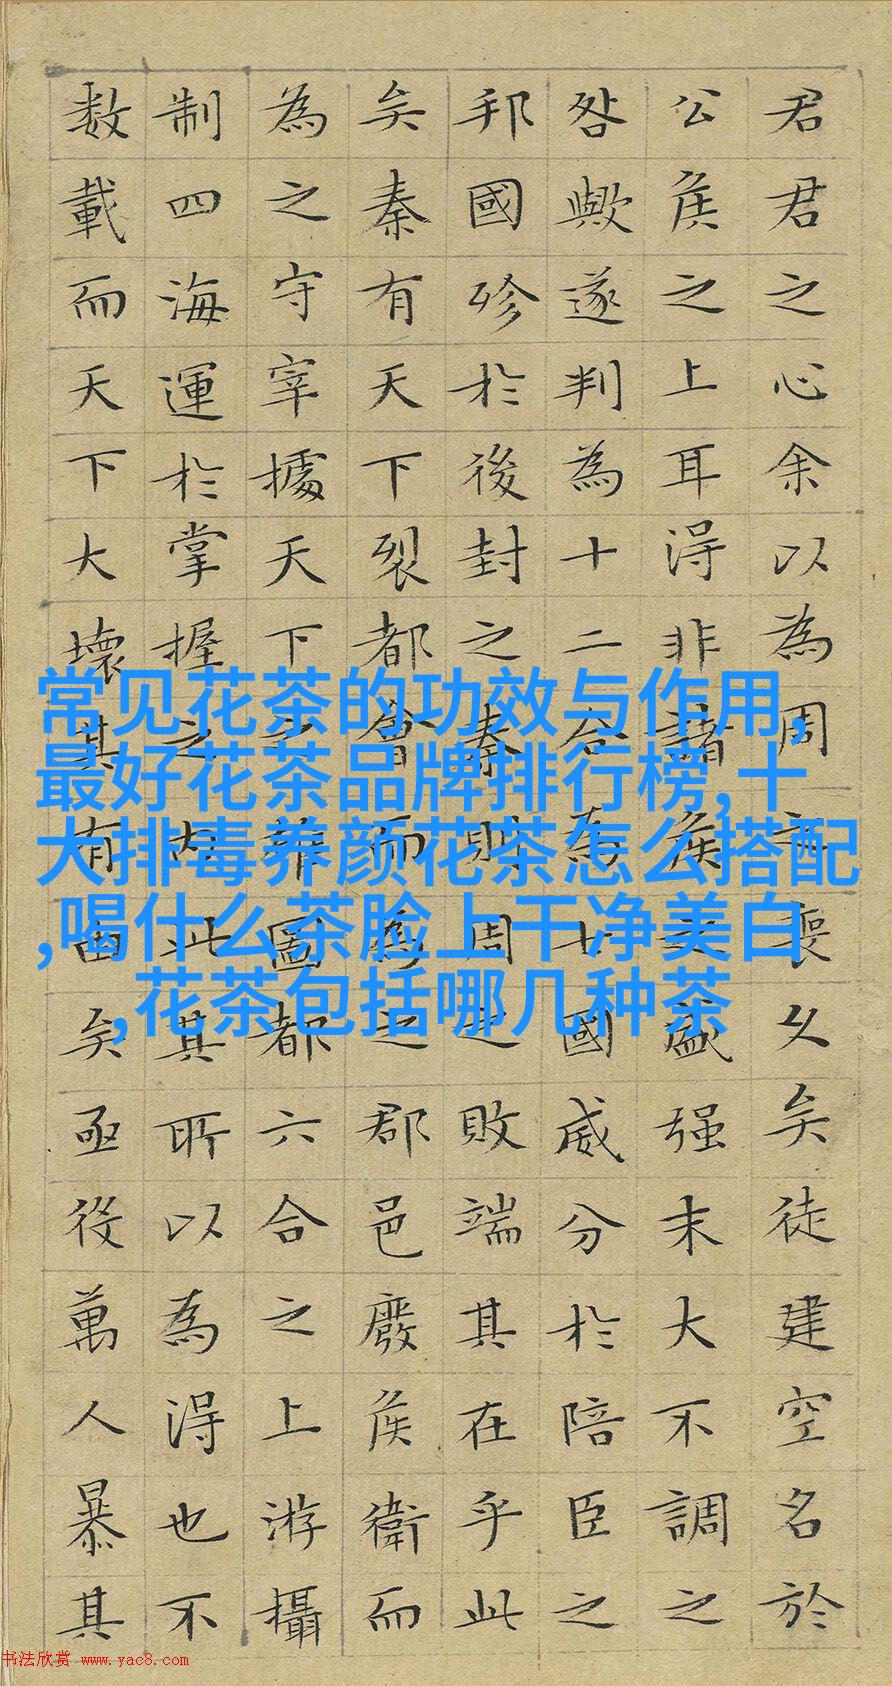 君君之心余以為周之喪久矣徒建空名於
公矦之上耳淂非諸矦之盛强末大不調之
咎歟遂判為十二合為七國威分於陪臣之
邦國殄於後封之秦則周之敗端其在乎此
矣秦有天下裂都會而為之郡邑廢矦衛而
為之守宰據天下之雄圖都六合之上游攝
制四海運於掌握之內此其所以為淂也不
数載而天下大壞其有由矣亟役萬人暴其
常见花茶的功效与作用,
最好花茶品牌排行榜,十
大排毒养颜花茶怎么搭配
,喝什么茶脸上干净美白
,花茶包括哪几种茶
书法欣赏 www.yac8.com